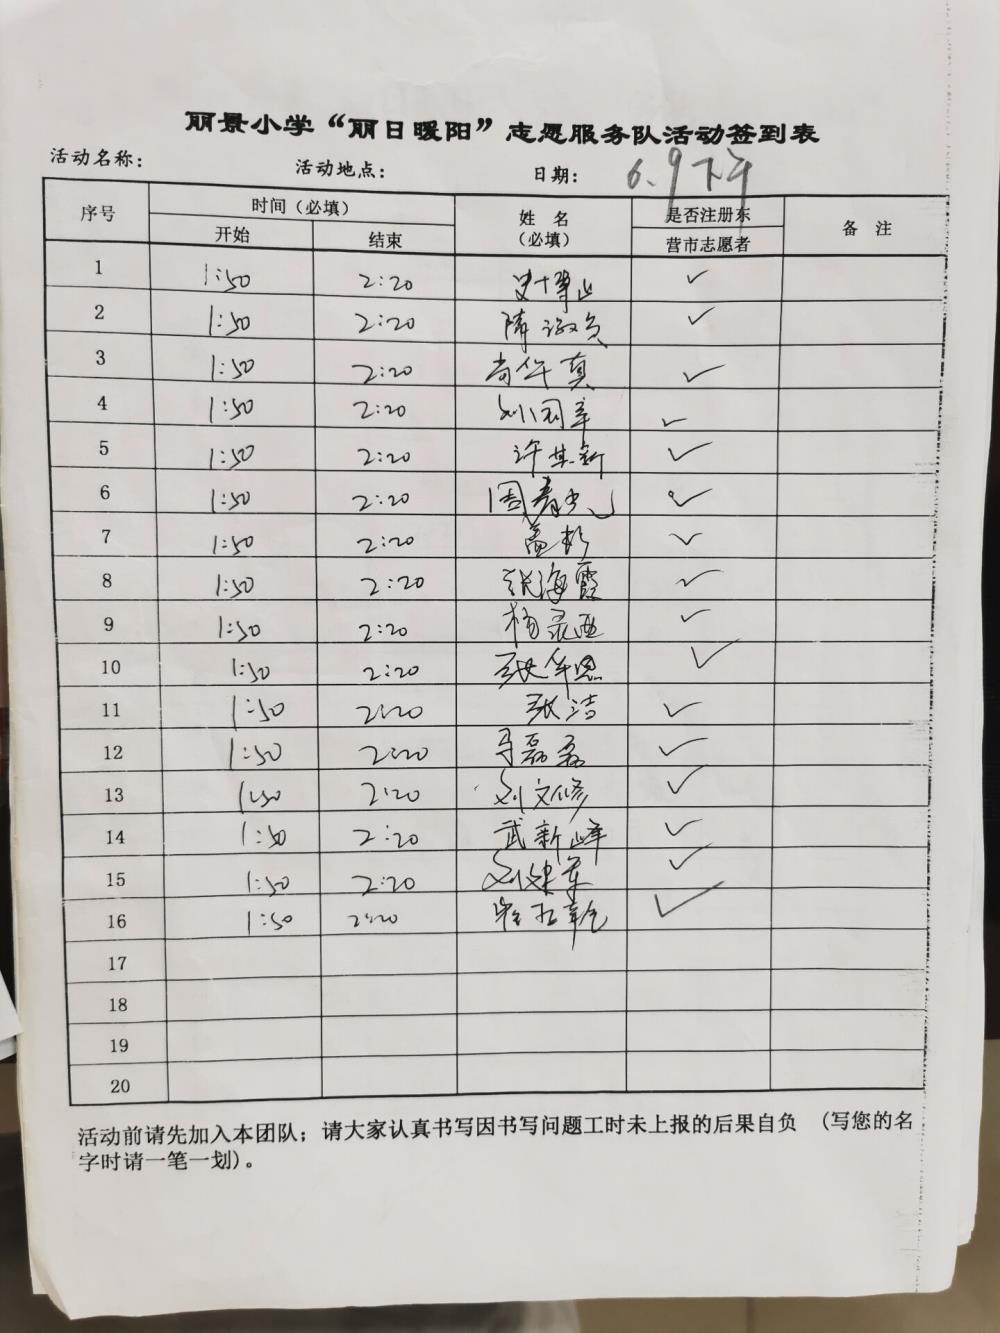 丽景小学“丽日暖阳”志愿服务队活动签到表
活动名称： 活动地点： 日期：6.9下午
序号 时间（必填） 姓 名 （必填） 是否注册东营市志愿者 备 注
开始 结束
1 1:50 2:20 ✓
2 1:50 2:20 隋 ✓
3 1:50 2:20 尚华真 ✓
4 1:50 2:20 刘 ✓
5 1:50 2:20 许其新 ✓
6 1:50 2:20 周春 ✓
7 1:50 2:20 孟彬 ✓
8 1:50 2:20 张海霞 ✓
9 1:50 2:20 杨 ✓
10 1:50 2:20 张华恩 ✓
11 1:50 2:20 张洁 ✓
12 1:50 2:20 马磊磊 ✓
13 1:50 2:20 刘文修 ✓
14 1:50 2:20 武新峰 ✓
15 1:50 2:20 刘 ✓
16 1:50 2:20 ✓
17
18
19
20
活动前请先加入本团队；请大家认真书写因书写问题工时未上报的后果自负 （写您的名
字时请一笔一划）。